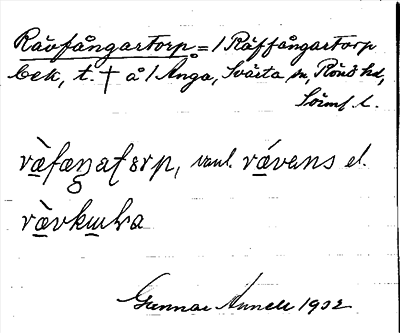 Rävfångartorp = / Räffångartorp
bek, t. † å / Ånga, Svärta sn, Rönö hd,
Sörml. l.
ràfæŋaʈɛrp, vanl. rávens el.
ràvkɯla
Gunnar Annell 1932